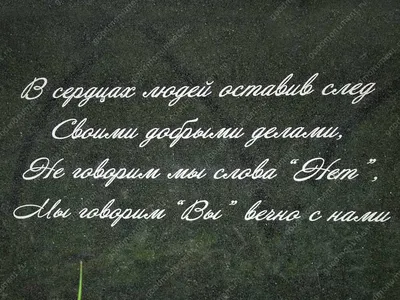 В сердцах людей оставив след
Своими добрыми делами,
Не говорим мы слова “Нет”,
Мы говорим “Вы” вечно с нами